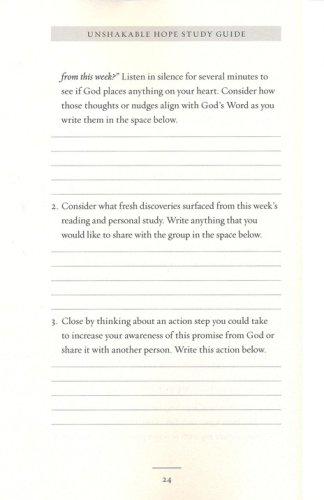 UNSHAKABLE HOPE STUDY GUIDE
from this week?” Listen in silence for several minutes to
see if God places anything on your heart. Consider how
those thoughts or nudges align with God’s Word as you
write them in the space below.
2. Consider what fresh discoveries surfaced from this week’s
reading and personal study. Write anything that you
would like to share with the group in the space below.
3. Close by thinking about an action step you could take
to increase your awareness of this promise from God or
share it with another person. Write this action below.
24